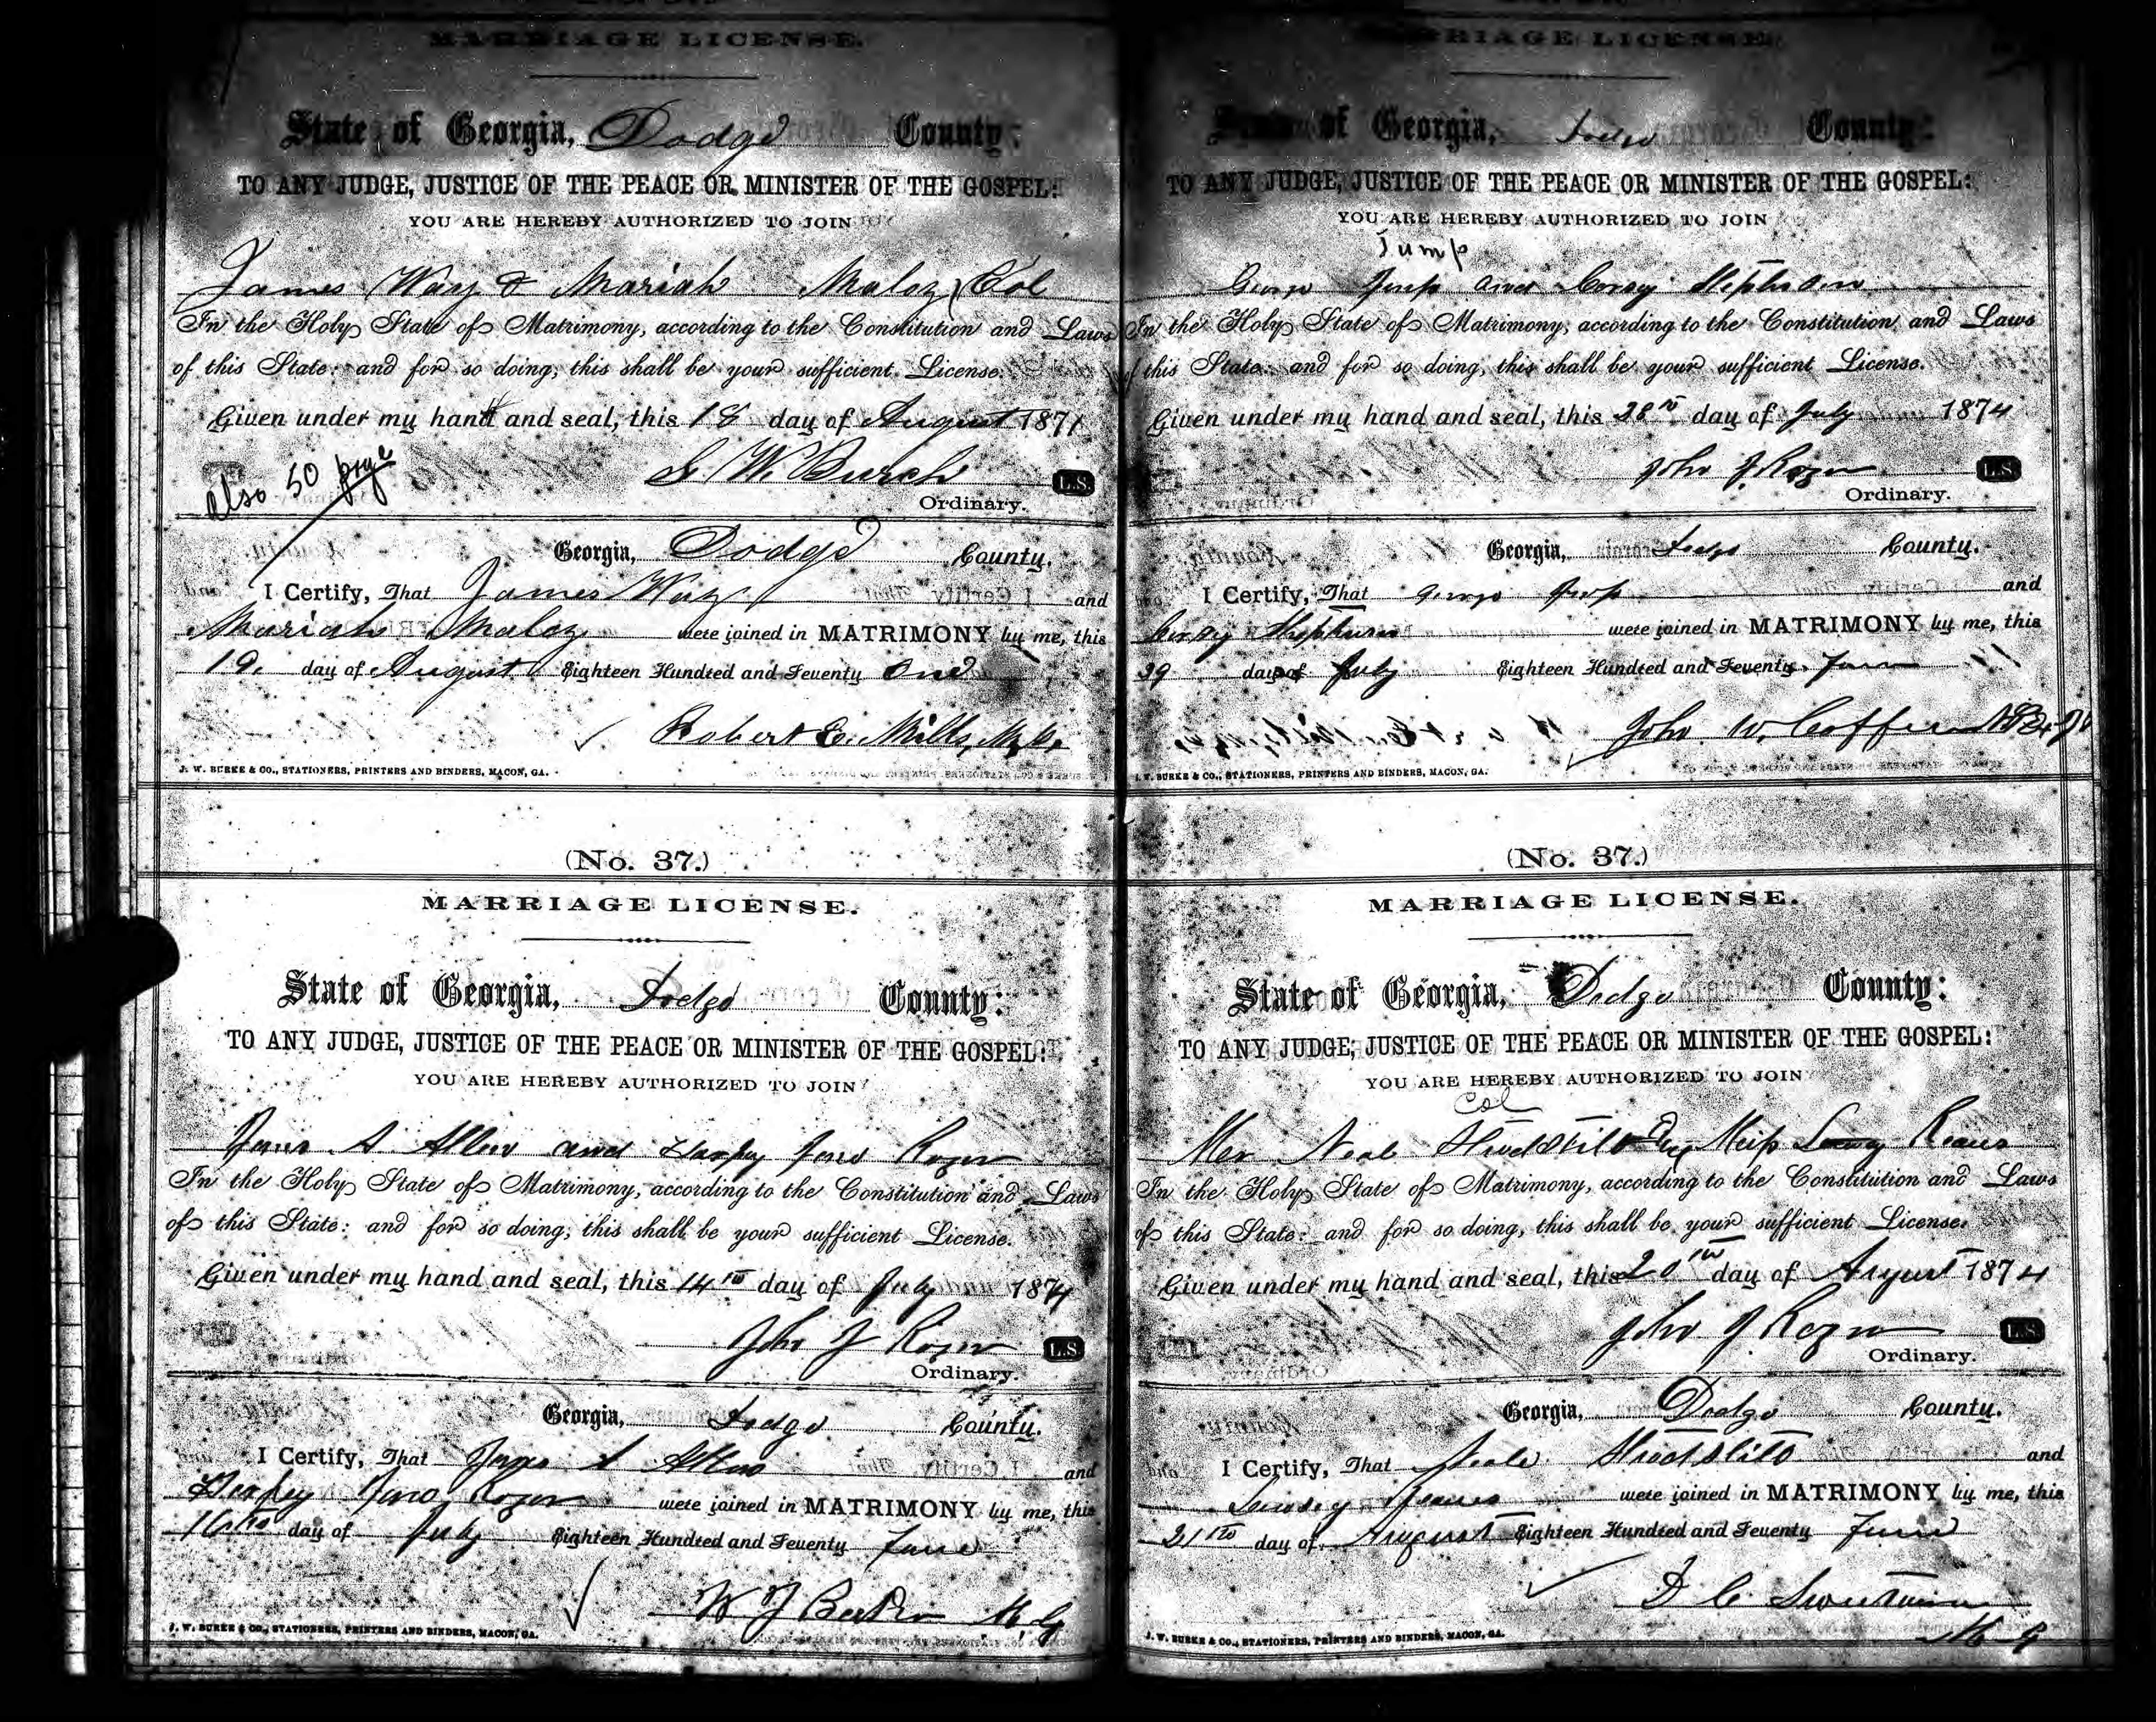 MARRIAGE LICENSE.
State of Georgia, Dodge County:
TO ANY JUDGE, JUSTICE OF THE PEACE OR MINISTER OF THE GOSPEL:
YOU ARE HEREBY AUTHORIZED TO JOIN
James Way & Mariah Maloy Col
In the Holy State of Matrimony, according to the Constitution and Laws
of this State: and for so doing, this shall be your sufficient License.
Given under my hand and seal, this 18 day of August 1871
S. W. Burch L.S.
Ordinary.
also 50 page
Georgia, Dodge County.
I Certify, That James Way and
Mariah Maloy were joined in MATRIMONY by me, this
19. day of August Eighteen Hundred and Seventy One
Robert E. Mills,
J. W. BURKE & CO., STATIONERS, PRINTERS AND BINDERS, MACON, GA.
(No. 37.)
MARRIAGE LICENSE.
State of Georgia, Dodge County:
TO ANY JUDGE, JUSTICE OF THE PEACE OR MINISTER OF THE GOSPEL:
YOU ARE HEREBY AUTHORIZED TO JOIN
A. Allen and Jane Rozer
In the Holy State of Matrimony, according to the Constitution and Laws
of this State: and for so doing, this shall be your sufficient License.
Given under my hand and seal, this 14th day of July 1874
John J Rozer L.S.
Ordinary.
Georgia, Dodge County.
I Certify, That A Allen and
Jane Rozer were joined in MATRIMONY by me, this
16th day of July Eighteen Hundred and Seventy Four
W J M. G
J. W. BURKE & CO., STATIONERS, PRINTERS AND BINDERS, MACON, GA.
MARRIAGE LICENSE.
State of Georgia, Dodge County:
TO ANY JUDGE, JUSTICE OF THE PEACE OR MINISTER OF THE GOSPEL:
YOU ARE HEREBY AUTHORIZED TO JOIN
Jump
George Jump and
In the Holy State of Matrimony, according to the Constitution and Laws
of this State: and for so doing, this shall be your sufficient License.
Given under my hand and seal, this 28th day of July 1874
John J. Rozer L.S.
Ordinary.
Georgia, Dodge County.
I Certify, That George Jump and
were joined in MATRIMONY by me, this
29 day of July Eighteen Hundred and Seventy Four
John W. Coffee
J. W. BURKE & CO., STATIONERS, PRINTERS AND BINDERS, MACON, GA.
(No. 37.)
MARRIAGE LICENSE.
State of Georgia, Dodge County:
TO ANY JUDGE, JUSTICE OF THE PEACE OR MINISTER OF THE GOSPEL:
YOU ARE HEREBY AUTHORIZED TO JOIN
Col
Mr Neal Miss
In the Holy State of Matrimony, according to the Constitution and Laws
of this State: and for so doing, this shall be your sufficient License.
Given under my hand and seal, this 20th day of August 1874
John J Rozer L.S.
Ordinary.
Georgia, Dodge County.
I Certify, That and
were joined in MATRIMONY by me, this
21th day of August Eighteen Hundred and Seventy Four
D C
M G
J. W. BURKE & CO., STATIONERS, PRINTERS AND BINDERS, MACON, GA.